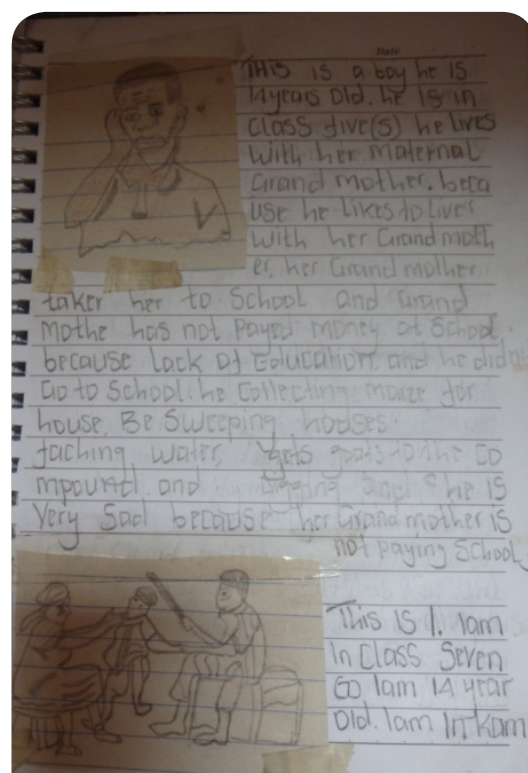 THIS is a boy he is
14 years old. he is in
Class five(s) he lives
with her maternal
Grand mother. beca
use he likes to lives
with her Grandmoth
er, her Grand mother
taker her to School and Grand
Mothe has not Payed money at School.
because Lack of Education and he didn
Go to School. he Collecting maize for
house, Be Sweeping houses.
faching water, gets goats to the Co
mpound. and digging and he is
Very Sad because her Grandmother is
not paying School
This is I. Iam
In Class Seven
Go Iam 14 year
Old. Iam In Kam